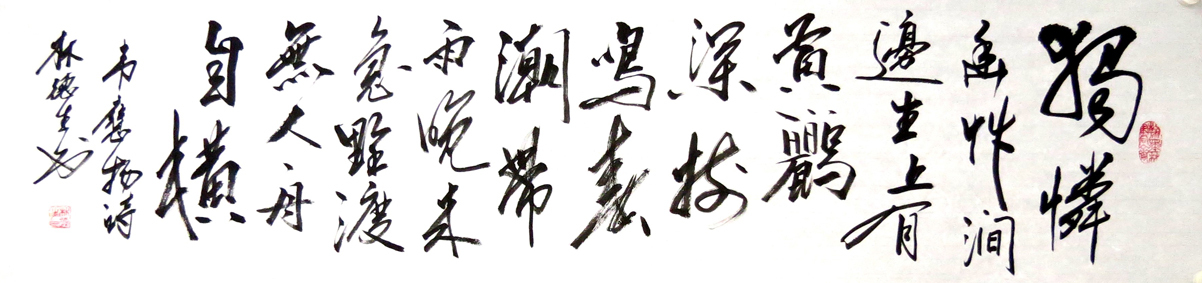 獨憐
幽艸澗
邊生上有
黄鸝
深樹
鳴春
潮帶
雨晚来
急野渡
無人舟
自橫
韦應物詩
林德生书